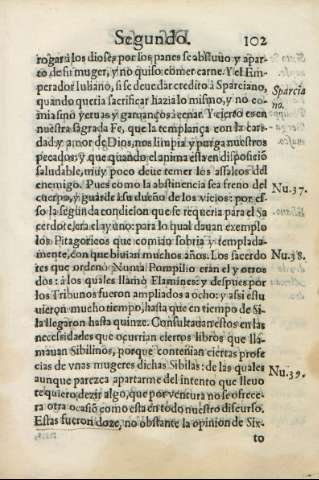 Segundo. 102
rogar à los dioses por los panes se abstuuo y apar-
to de su muger, y no quiso comer carne. Y el Em-
perador Iuliano, si se deue dar credito à Sparciano,
quando queria sacrificar hazia lo mismo, y no co-
mia sino yeruas y garuanços à cenar. Y cierto es en
nuestra sagrada Fe, que la templança con la cari-
dad y amor de Dios, nos limpia y purga nuestros
pecados: y que quando el anima està en disposiciõ
saludable, muy poco deue temer los assaltos del
enemigo. Pues como la abstinencia sea freno del
cuerpo, y guarde à su dueño de los vicios: por es-
so la segunda condicion que se requeria para el Sa
cerdote, era el ayuno: para lo qual dauan exemplo
los Pitagoricos que comiã sobria y templada-
mente, con que biuian muchos años. Los sacerdo
tes que ordenò Numa Pompilio eran el y otros
dos: à los quales llamò Flamines: y despues por
los Tribunos fueron ampliados à ocho: y assi estu
uieron mucho tiempo, hasta que en tiempo de Si-
la llegaron hasta quinze. Consultauan estos en las
necessidades que ocurrian ciertos libros que lla-
mauan Sibilinos, porque contenian ciertas profe
cias de vnas mugeres dichas Sibilas: de las quales
aunque parezca apartarme del intento que lleuo
te quiero dezir algo, que por ventura no se ofrece-
ra otra ocasiõ como esta en todo nuestro discurso.
Estas fueron doze, no obstante la opinion de Six-
to
Sparcia
no.
Nu. 37.
Nu. 38.
Nu. 39.